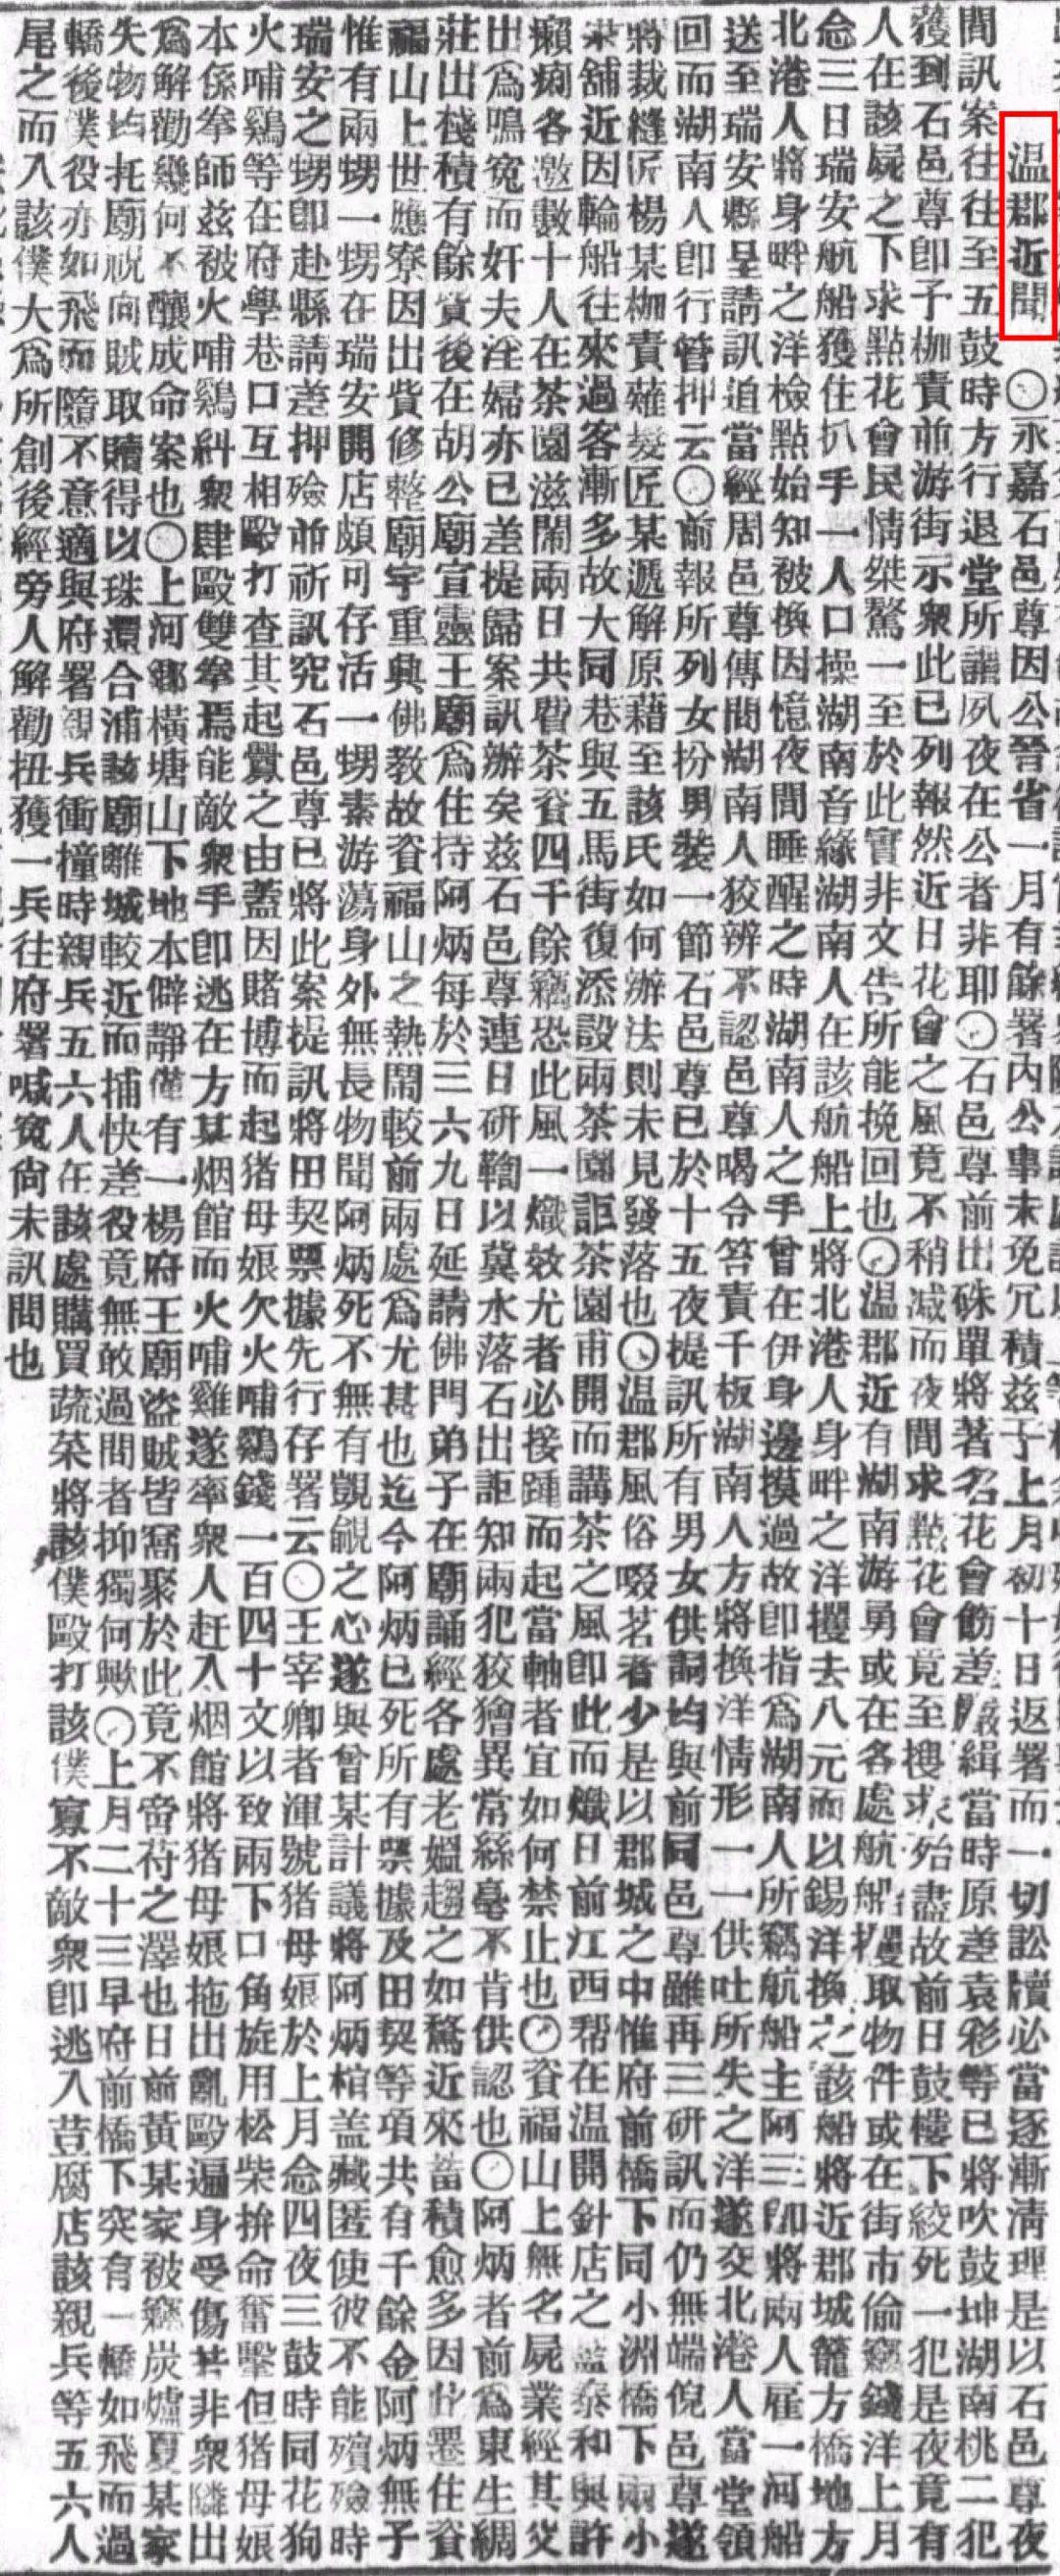 温郡近聞　〇永嘉石邑尊因公晉省一月有餘署內公事未免冗積茲于上月初十日返署而一切訟牘必當逐漸清理是以石邑尊夜
間訊案往往至五鼓時方行退堂所謂夙夜在公者非耶〇石邑尊前出硃單將著名花會飭差嚴緝當時原差袁彩等已將吹鼓坤湖南桃二犯
獲到石邑尊即予枷責並游街示眾此已列報然近日花會之風竟不稍減而夜間求點花會竟至搜求殆盡故前日鼓樓下絞死一犯是夜竟有
人在該屍之下求點花會民情桀驁一至於此實非文告所能挽回也〇温郡近有湖南游勇或在各處航船攫取物件或在街市偷竊錢洋上月
念三日瑞安航船獲住扒手一人口操湖南音緣湖南人在該航船上將北港人身畔之洋攫去八元而以錫洋換之該船將近郡城籠方橋地方
北港人將身畔之洋檢點始知被換因憶夜間睡醒之時湖南人之手曾在伊身邊摸過故即指爲湖南人所竊航船主阿三即將兩人雇一河船
送至瑞安縣呈請訊追當經周邑尊傳問湖南人狡辨不認邑尊喝令笞責千板湖南人方將換洋情形一一供吐所失之洋遂交北港人當堂領
回而湖南人即行管押云〇前報所列女扮男裝一節石邑尊已於十五夜提訊所有男女供詞均與前同邑尊雖再三研訊而仍無端倪邑尊遂
將裁縫匠楊某枷責薙髮匠某遞解原藉至該氏如何辦法則未見發落也〇温郡風俗啜茗者少是以郡城之中惟府前橋下同小洲橋下兩小
茶舖近因輪船往來過客漸多故大同巷與五馬街復添設兩茶園詎茶園甫開而講茶之風即此而熾日前江西帮在温開針店之藍泰和與許
癩痢各邀數十人在茶園滋鬧兩日共費茶資四千餘竊恐此風一熾效尤者必接踵而起當軸者宜如何禁止也〇資福山上無名屍業經其父
出爲鳴寃而奸夫淫婦亦已差提歸案訊辦矣茲石邑尊連日研鞫以冀水落石出詎知兩犯狡獪異常絲毫不肯供認也〇阿炳者前爲東生綢
莊出棧積有餘貲後在胡公廟宣靈王廟爲住持阿炳每於三六九日延請佛門弟子在廟誦經各處老媼趨之如鶩近來蓄積愈多因此遷住資
福山上世應寮因出貲修整廟宇重興佛教故資福山之熱鬧較前兩處爲尤甚也迄今阿炳已死所有票據及田契等項共有千餘金阿炳無子
惟有兩甥一甥在瑞安開店頗可存活一甥素游蕩身外無長物聞阿炳死不無有覬覦之心遂與曾某計議將阿炳棺盖藏匿使彼不能殯殮時
瑞安之甥即赴縣請差押殮並祈訊究石邑尊已將此案提訊將田契票據先行存署云〇王宰卿者渾號猪母娘於上月念四夜三鼓時同花狗
火哺鷄等在府學巷口互相毆打查其起釁之由蓋因賭博而起猪母娘欠火哺鷄錢一百四十文以致兩下口角旋用松柴拚命奮擊但猪母娘
本係拳師茲被火哺鷄糾眾肆毆雙拳焉能敵眾手即逃在方某烟館而火哺雞遂率眾人赶入烟館將猪母娘拖出亂毆遍身受傷若非眾隣出
爲解勸幾何不釀成命案也〇上河鄉橫塘山下地本僻靜僅有一楊府王廟盜賊皆窩聚於此竟不啻苻之澤也日前黃某家被竊炭爐夏某家
失物均托廟祝向賊取贖得以珠還合浦該廟離城較近而捕快差役竟無敢過問者抑獨何歟〇上月二十三早府前橋下突有一轎如飛而過
轎後僕役亦如飛而隨不意適與府署親兵衝撞時親兵五六人在該處購買蔬菜將該僕毆打該僕寡不敵眾即逃入荳腐店該親兵等五六人
尾之而入該僕大爲所創後經旁人解勸扭獲一兵往府署喊寃尙未訊問也